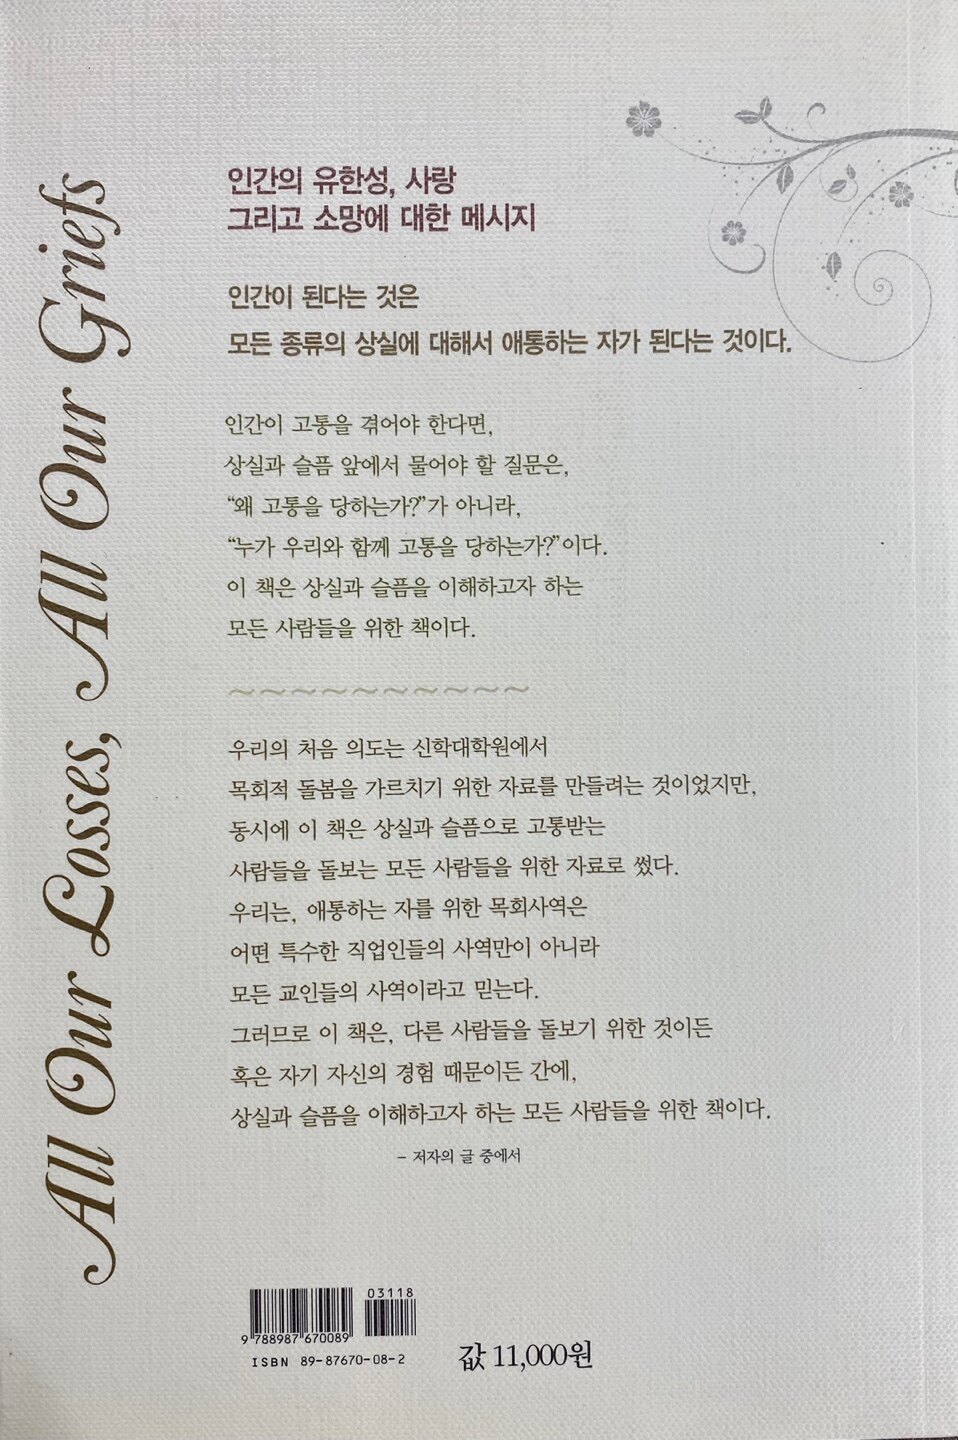 All Our Losses, All Our Griefs
인간의 유한성, 사랑
그리고 소망에 대한 메시지
인간이 된다는 것은
모든 종류의 상실에 대해서 애통하는 자가 된다는 것이다.
인간이 고통을 겪어야 한다면,
상실과 슬픔 앞에서 물어야 할 질문은,
“왜 고통을 당하는가?”가 아니라,
“누가 우리와 함께 고통을 당하는가?”이다.
이 책은 상실과 슬픔을 이해하고자 하는
모든 사람들을 위한 책이다.
우리의 처음 의도는 신학대학원에서
목회적 돌봄을 가르치기 위한 자료를 만들려는 것이었지만,
동시에 이 책은 상실과 슬픔으로 고통받는
사람들을 돌보는 모든 사람들을 위한 자료로 썼다.
우리는, 애통하는 자를 위한 목회사역은
어떤 특수한 직업인들의 사역만이 아니라
모든 교인들의 사역이라고 믿는다.
그러므로 이 책은, 다른 사람들을 돌보기 위한 것이든
혹은 자기 자신의 경험 때문이든 간에,
상실과 슬픔을 이해하고자 하는 모든 사람들을 위한 책이다.
– 저자의 글 중에서
03118
9 788987 670089
ISBN 89-87670-08-2
값 11,000원